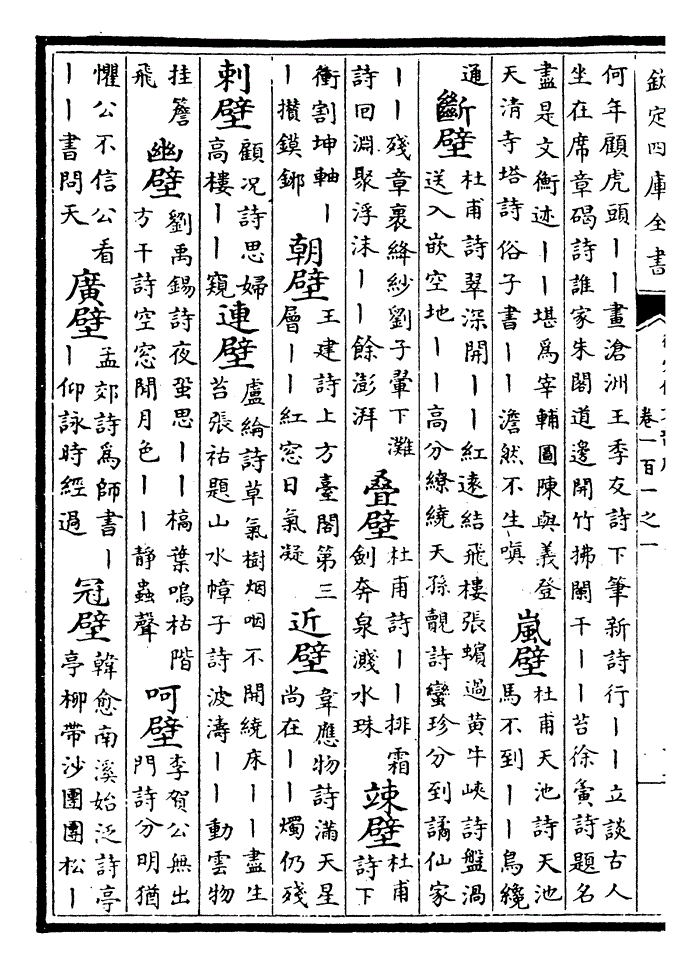 欽定四庫全書
卷一百一之一
何年顧虎頭丨丨畫滄洲王季友詩下筆新詩行丨丨立談古人
坐在席章碣詩誰家朱閣道邊開竹拂闌干丨丨苔徐夤詩題名
盡是文衡迹丨丨堪為宰輔圖陳與義登
天清寺塔詩俗子書丨丨澹然不生嗔
嵐壁
杜甫天池詩天池
馬不到丨丨鳥纔
通
斷壁
杜甫詩翠深開丨丨紅遠結飛樓張蠙過黃牛峽詩盤渦
送入嵌空地丨丨高分繚繞天孫覿詩蠻珍分到謫仙家
丨丨殘章裹絳紗劉子翬下灘
詩回淵聚浮沫丨丨餘澎湃
疊壁
杜甫詩丨丨排霜
劍奔泉濺水珠
竦壁
杜甫
詩下
衝割坤軸丨
丨攢鏌鋣
朝壁
王建詩上方臺閣第三
層丨丨紅窓日氣凝
近壁
韋應物詩滿天星
尚在丨丨燭仍殘
刺壁
顧況詩思婦
高樓丨丨窺
連壁
盧綸詩草氣樹烟咽不開繞床丨丨盡生
苔張祜題山水幛子詩波濤丨丨動雲物
挂簷
飛
幽壁
劉禹錫詩夜蛩思丨丨槁葉鳴枯階
方干詩空窓聞月色丨丨靜蟲聲
呵壁
李賀公無出
門詩分明猶
懼公不信公看
丨丨書問天
廣壁
孟郊詩為師書丨
丨仰詠時經過
冠壁
韓愈南溪始泛詩亭
亭柳帶沙團團松丨